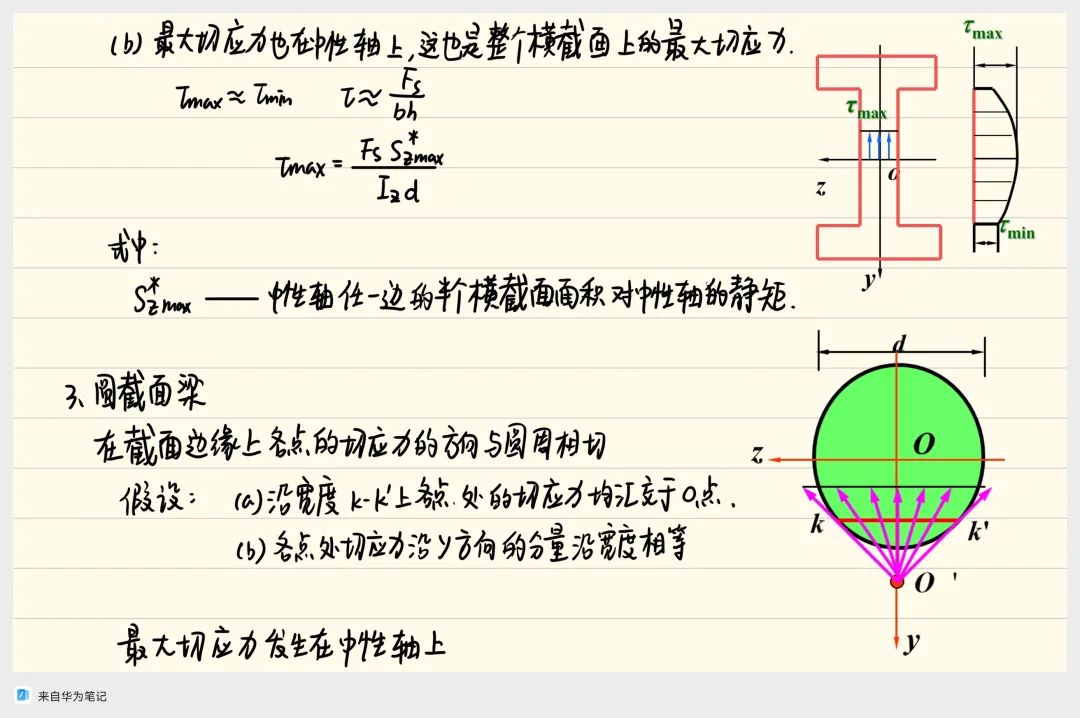 (b) 最大切应力也在中性轴上,这也是整个横截面上的最大切应力.
τmax ≈ τmin τ ≈ Fs/bh
τmax = Fs S*zmax / Iz d
式中:
S*zmax —— 中性轴任一边的半个横截面面积对中性轴的静矩.
τmax
τmax
o
z
y
τmin
3、圆截面梁
在截面边缘上各点的切应力的方向与圆周相切
假设: (a)沿宽度 k-k'上各点处的切应力均汇交于O'点.
(b) 各点处切应力沿y方向的分量沿宽度相等
最大切应力发生在中性轴上
d
O
z
k
k'
O '
y
来自华为笔记